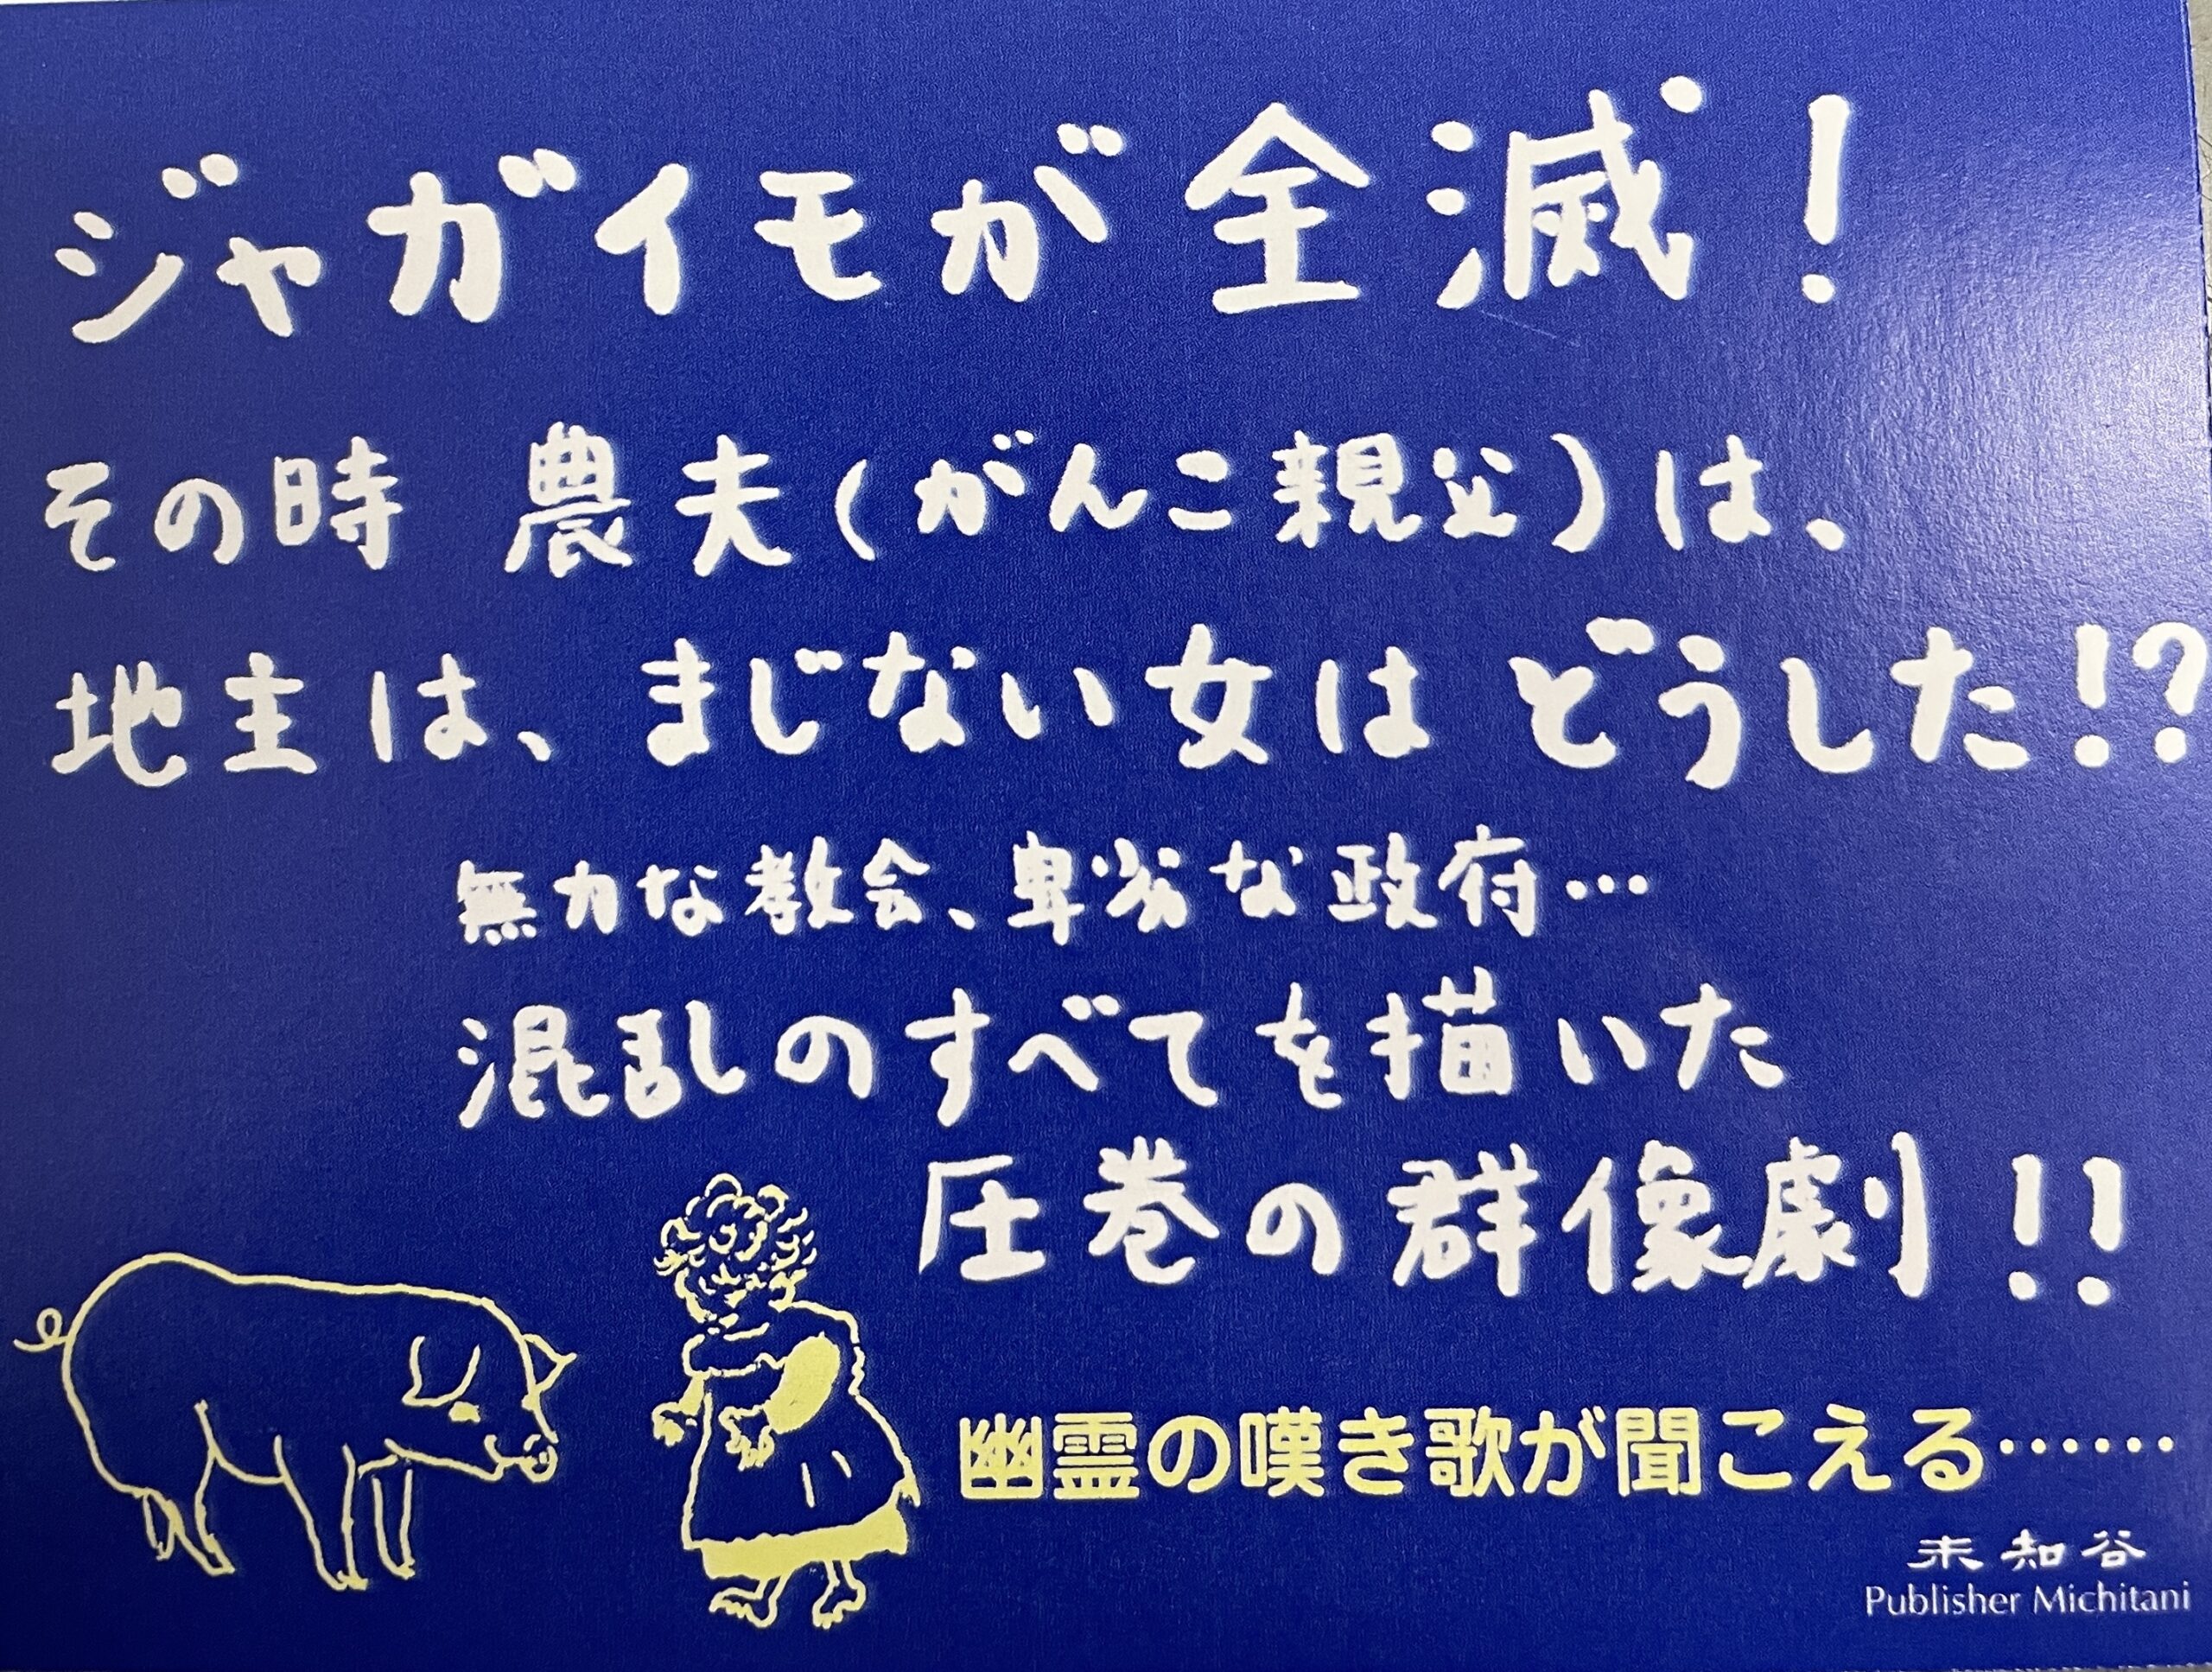 ジャガイモが全滅！
その時 農夫(がんこ親父)は、
地主は、まじない女は どうした!?
無力な教会、卑劣な政府…
混乱のすべてを描いた
圧巻の群像劇!!
幽霊の嘆き歌が聞こえる……
未知谷
Publisher Michitani